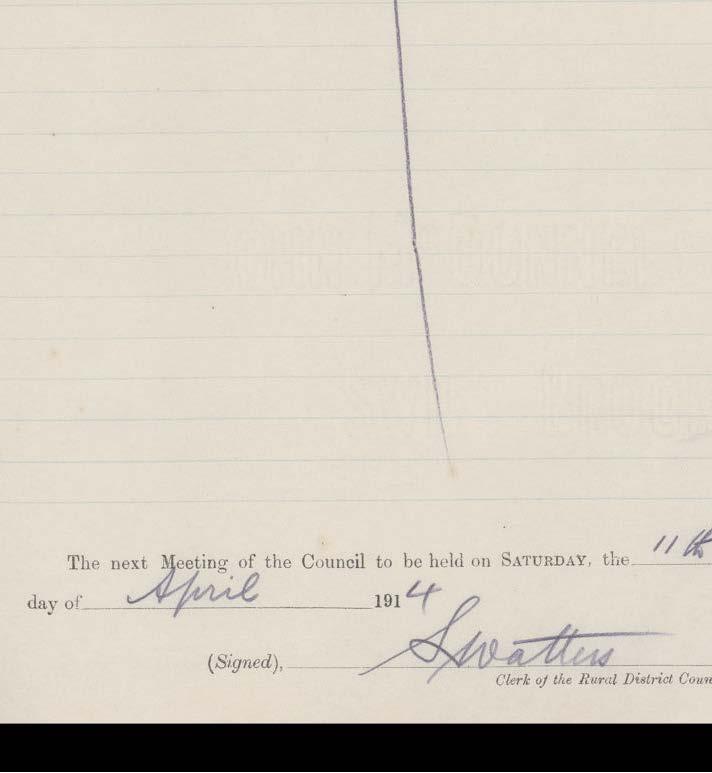 The next Meeting of the Council to be held on SATURDAY, the 11th
day of April 1914
(Signed), S Watters
Clerk of the Rural District Coun